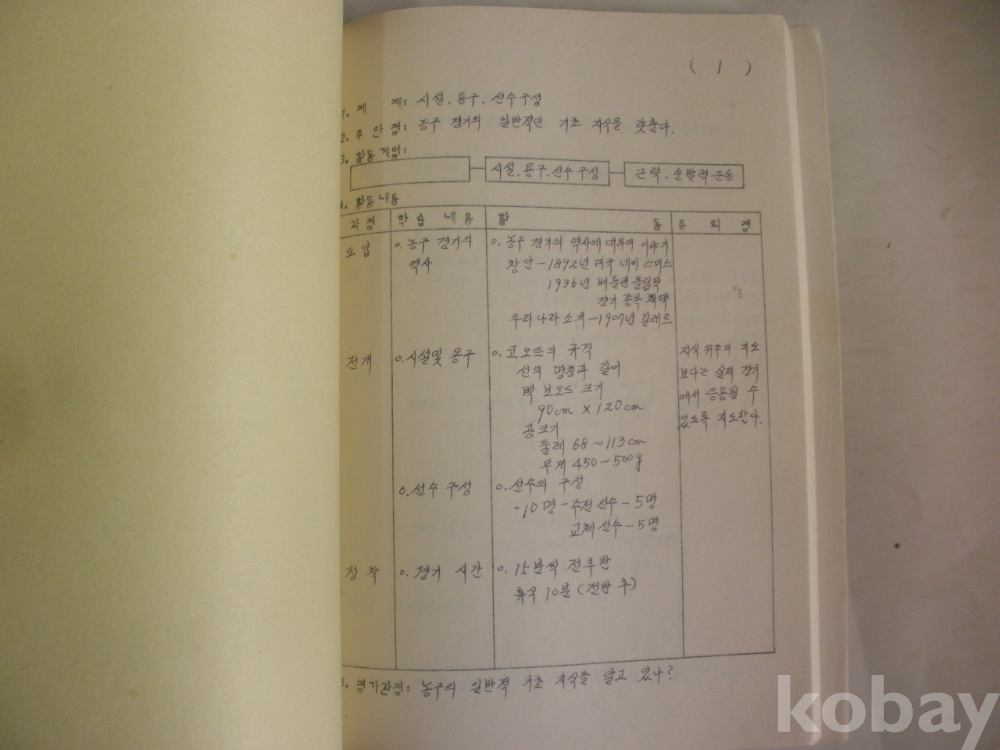 ( 1 )
1. 제 재: 시설. 용구. 선수구성
2. 주안점: 농구 경기의 일반적인 기초 지식을 갖춘다.
3. 활동계열:
시설. 용구. 선수구성
근력. 순발력 운동
4. 활동내용
과정 학습 내용 활 동 유 의 점
도입 ㅇ. 농구 경기의 ㅇ. 농구 경기의 역사에 대하여 이야기
역사 창안-1892년 미국 네이 스미스
1936년 베를린 올림픽
경기 종목 채택
우리 나라 소개-1907년 길레르
전개 ㅇ. 시설및 용구 ㅇ. 코오트의 규격 지식 위주의 지도
선의 명칭과 길이 보다는 실제 경기
백 보오드 크기 에서 응용될 수
90cm × 120cm 있도록 지도한다.
공크기
둘레 68~113cm
무게 450~500g
ㅇ. 선수 구성 ㅇ. 선수의 구성
-10명-주전 선수-5명
교체 선수-5명
정착 ㅇ. 경기 시간 ㅇ. 15분씩 전후반
휴식 10분 (전반 후)
5. 평가관점: 농구의 일반적 기초 지식을 알고 있나?
kobay